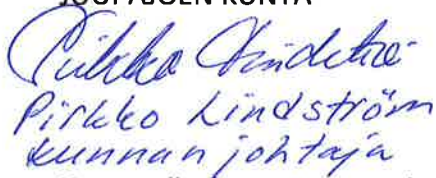 JUUPAJOEN KUNTA
Pirkko Lindström
Pirkko Lindström
kunnanjohtaja